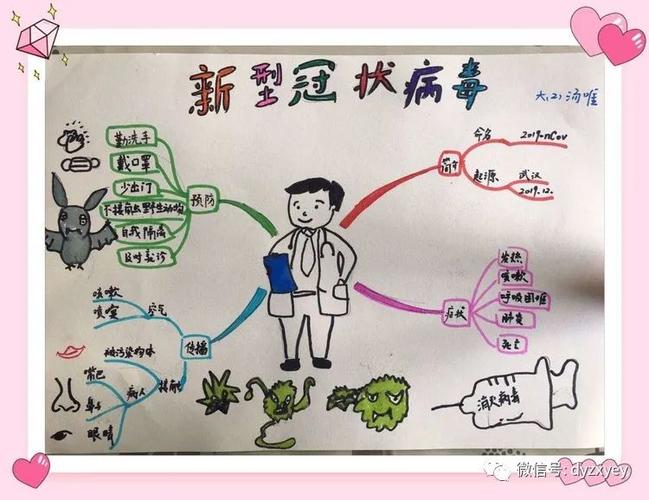 新型冠状病毒
大(2)汤唯
预防
勤洗手
戴口罩
少出门
不接触野生动物
自我隔离
及时就诊
简介
命名
2019-nCov
起源
武汉
2019.12.
传播
空气
咳嗽
喷嚏
接触
被污染物体
病人
嘴巴
鼻子
眼睛
症状
发热
咳嗽
呼吸困难
肺炎
死亡
消灭病毒
微信号: dyzxyey